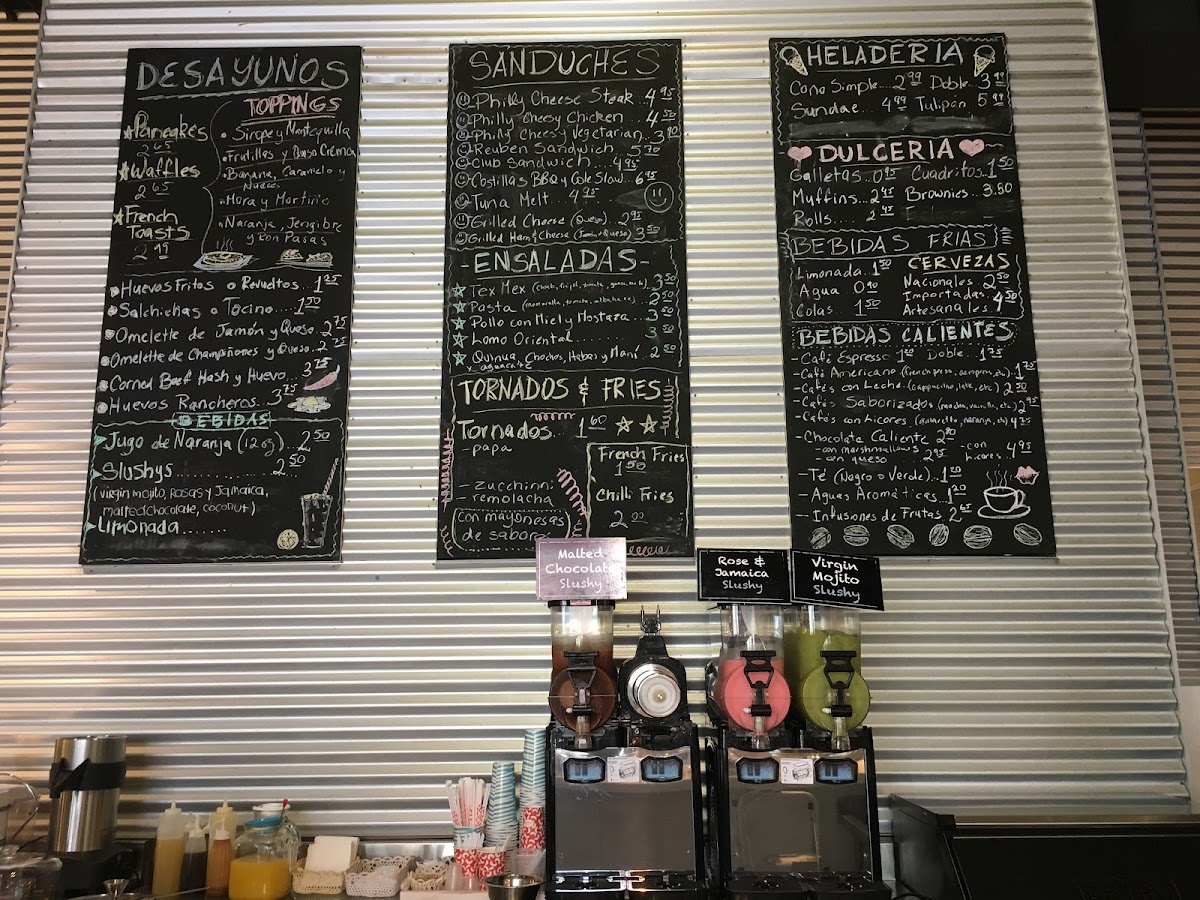 DESAYUNOS
TOPPINGS
Pancakes
2.65
Waffles
2.65
French
Toasts
2.99
• Sirope y Mantequilla
• Frutillas y Queso Crema
• Banana, Caramelo y
Nueces
• Mora y
• Naranja, Jengibre
y Ron Pasas
Huevos Fritos o Revueltos.. 1.25
Salchichas o Tocino.... 1.50
Omelette de Jamón y Queso. 2.75
Omelette de Champiñones y Queso.. 2.75
Corned Beef Hash y Huevo... 3.75
Huevos Rancheros.. 3.75
BEBIDAS
Jugo de Naranja (12 oz)... 2.50
Slushys........... 2.50
(virgin mojito, rosas y Jamaica,
malted chocolate, coconut)
Limonada.......
SANDUCHES
Philly Cheese Steak.. 4.95
Philly Cheesy Chicken.. 4.50
Philly Cheesy Vegetarian.. 3.90
Reuben Sandwich.. 5.70
Club Sandwich.... 4.95
Costillas BBQ y Cole Slaw.. 6.95
Tuna Melt.. 4.95
Grilled Cheese (Queso).. 2.95
Grilled Ham & Cheese (Jamón y Queso) 3.50
-ENSALADAS-
Tex Mex 3.50
Pasta 2.50
Pollo con Miel y Mostaza.. 3.50
Lomo Oriental........ 3.50
Quinua, Chochos, Habas y Maní. 2.50
y aguacate
TORNADOS & FRIES
Tornados... 1.60
-papa
-zucchinni
-remolacha
con mayonesas
de sabores
French Fries
1.50
Chilli Fries
2.00
HELADERIA
Cono Simple... 2.99 Doble. 3.99
Sundae.. 4.99 Tulipan. 5.99
DULCERIA
Galletas.. 0.95 Cuadritos. 1.50
Muffins.. 2.45 Brownies. 3.50
Rolls.... 2.45
BEBIDAS FRIAS
Limonada.. 1.50
Agua 0.90
Colas. 1.50
CERVEZAS
Nacionales. 2.50
Importadas.
Artesanales. 4.50
BEBIDAS CALIENTES
-Café Espresso Doble. 1.75
-Café Americano (french press, aeropress, etc).. 1.75
-Cafés con Leche. (cappuccino, late, etc) 2.50
-Cafés Saborizados (mocha, vainilla, etc) 2.95
-Cafés con Licores (amaretto, naranja, etc) 4.75
-Chocolate Caliente 2.80
-con marshmallows
-con queso 2.95
-con
licores. 4.95
-Té (Negro o Verde).. 1.20
-Aguas Aromáticas.. 1.20
-Infusiones de Frutas. 2.65
Malted
Chocolate
Slushy
Rose &
Jamaica
Slushy
Virgin
Mojito
Slushy